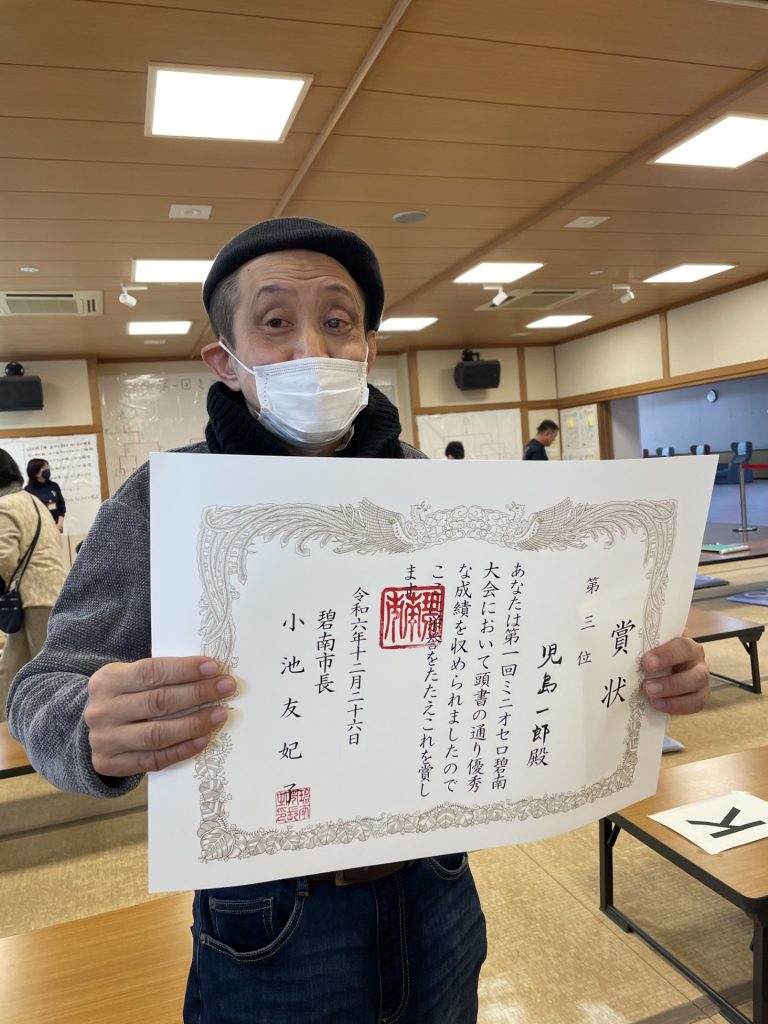 賞状
第三位
児島一郎殿
あなたは第一回ミニオセロ碧南
大会において頭書の通り優秀
な成績を収められましたので
こ 栄誉をたたえこれを賞し
ます
令和六年十二月二十六日
碧南市長
小池友妃子
碧南
K